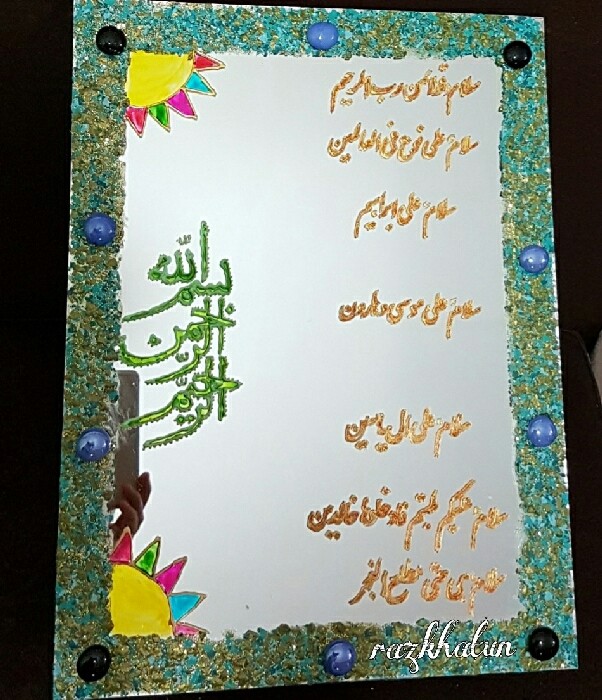 سلامٌ قولاً من رب الرحیم
سلامٌ علی نوح فی العالمین
سلامٌ علی ابراهیم
سلامٌ علی موسی وهارون
سلامٌ علی ال یاسین
سلام علیکم طبتم فادخلوها خالدین
سلام هی حتی مطلع الفجر
بسم الله الرحمن الرحیم
razkhalun